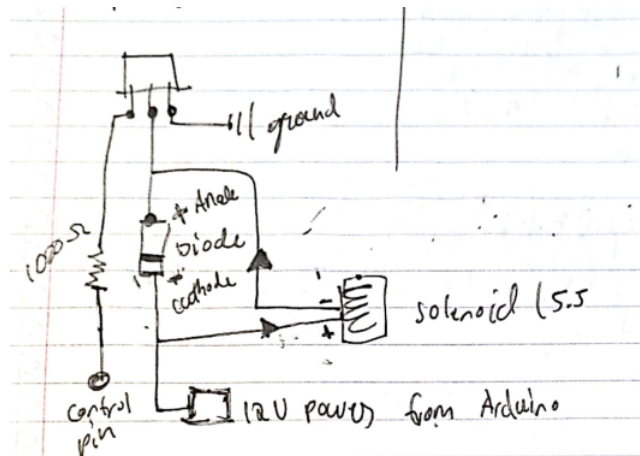 ground
+ Anode
Diode
cathode
1000 Ω
-
+
solenoid (5.5
control
pin
12V power from Arduino